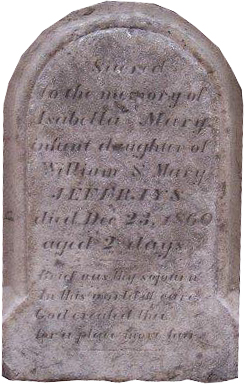 Sacred
to the memory of
Isabella Mary
infant daughter of
William & Mary
JEFFRAYS
died Dec 23, 1860
aged 2 days
Brief was thy sojourn
In this world of care
God created thee
for a place more fair